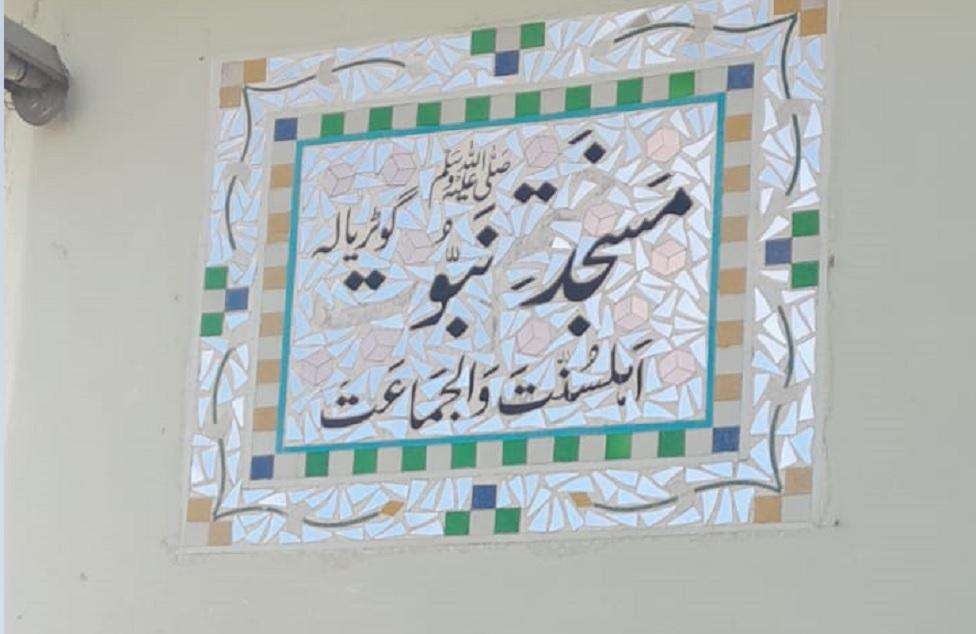 مسجدِ نبویؐ صلی اللہ علیہ وسلم گوٹریالہ
اہلسنّت والجماعت